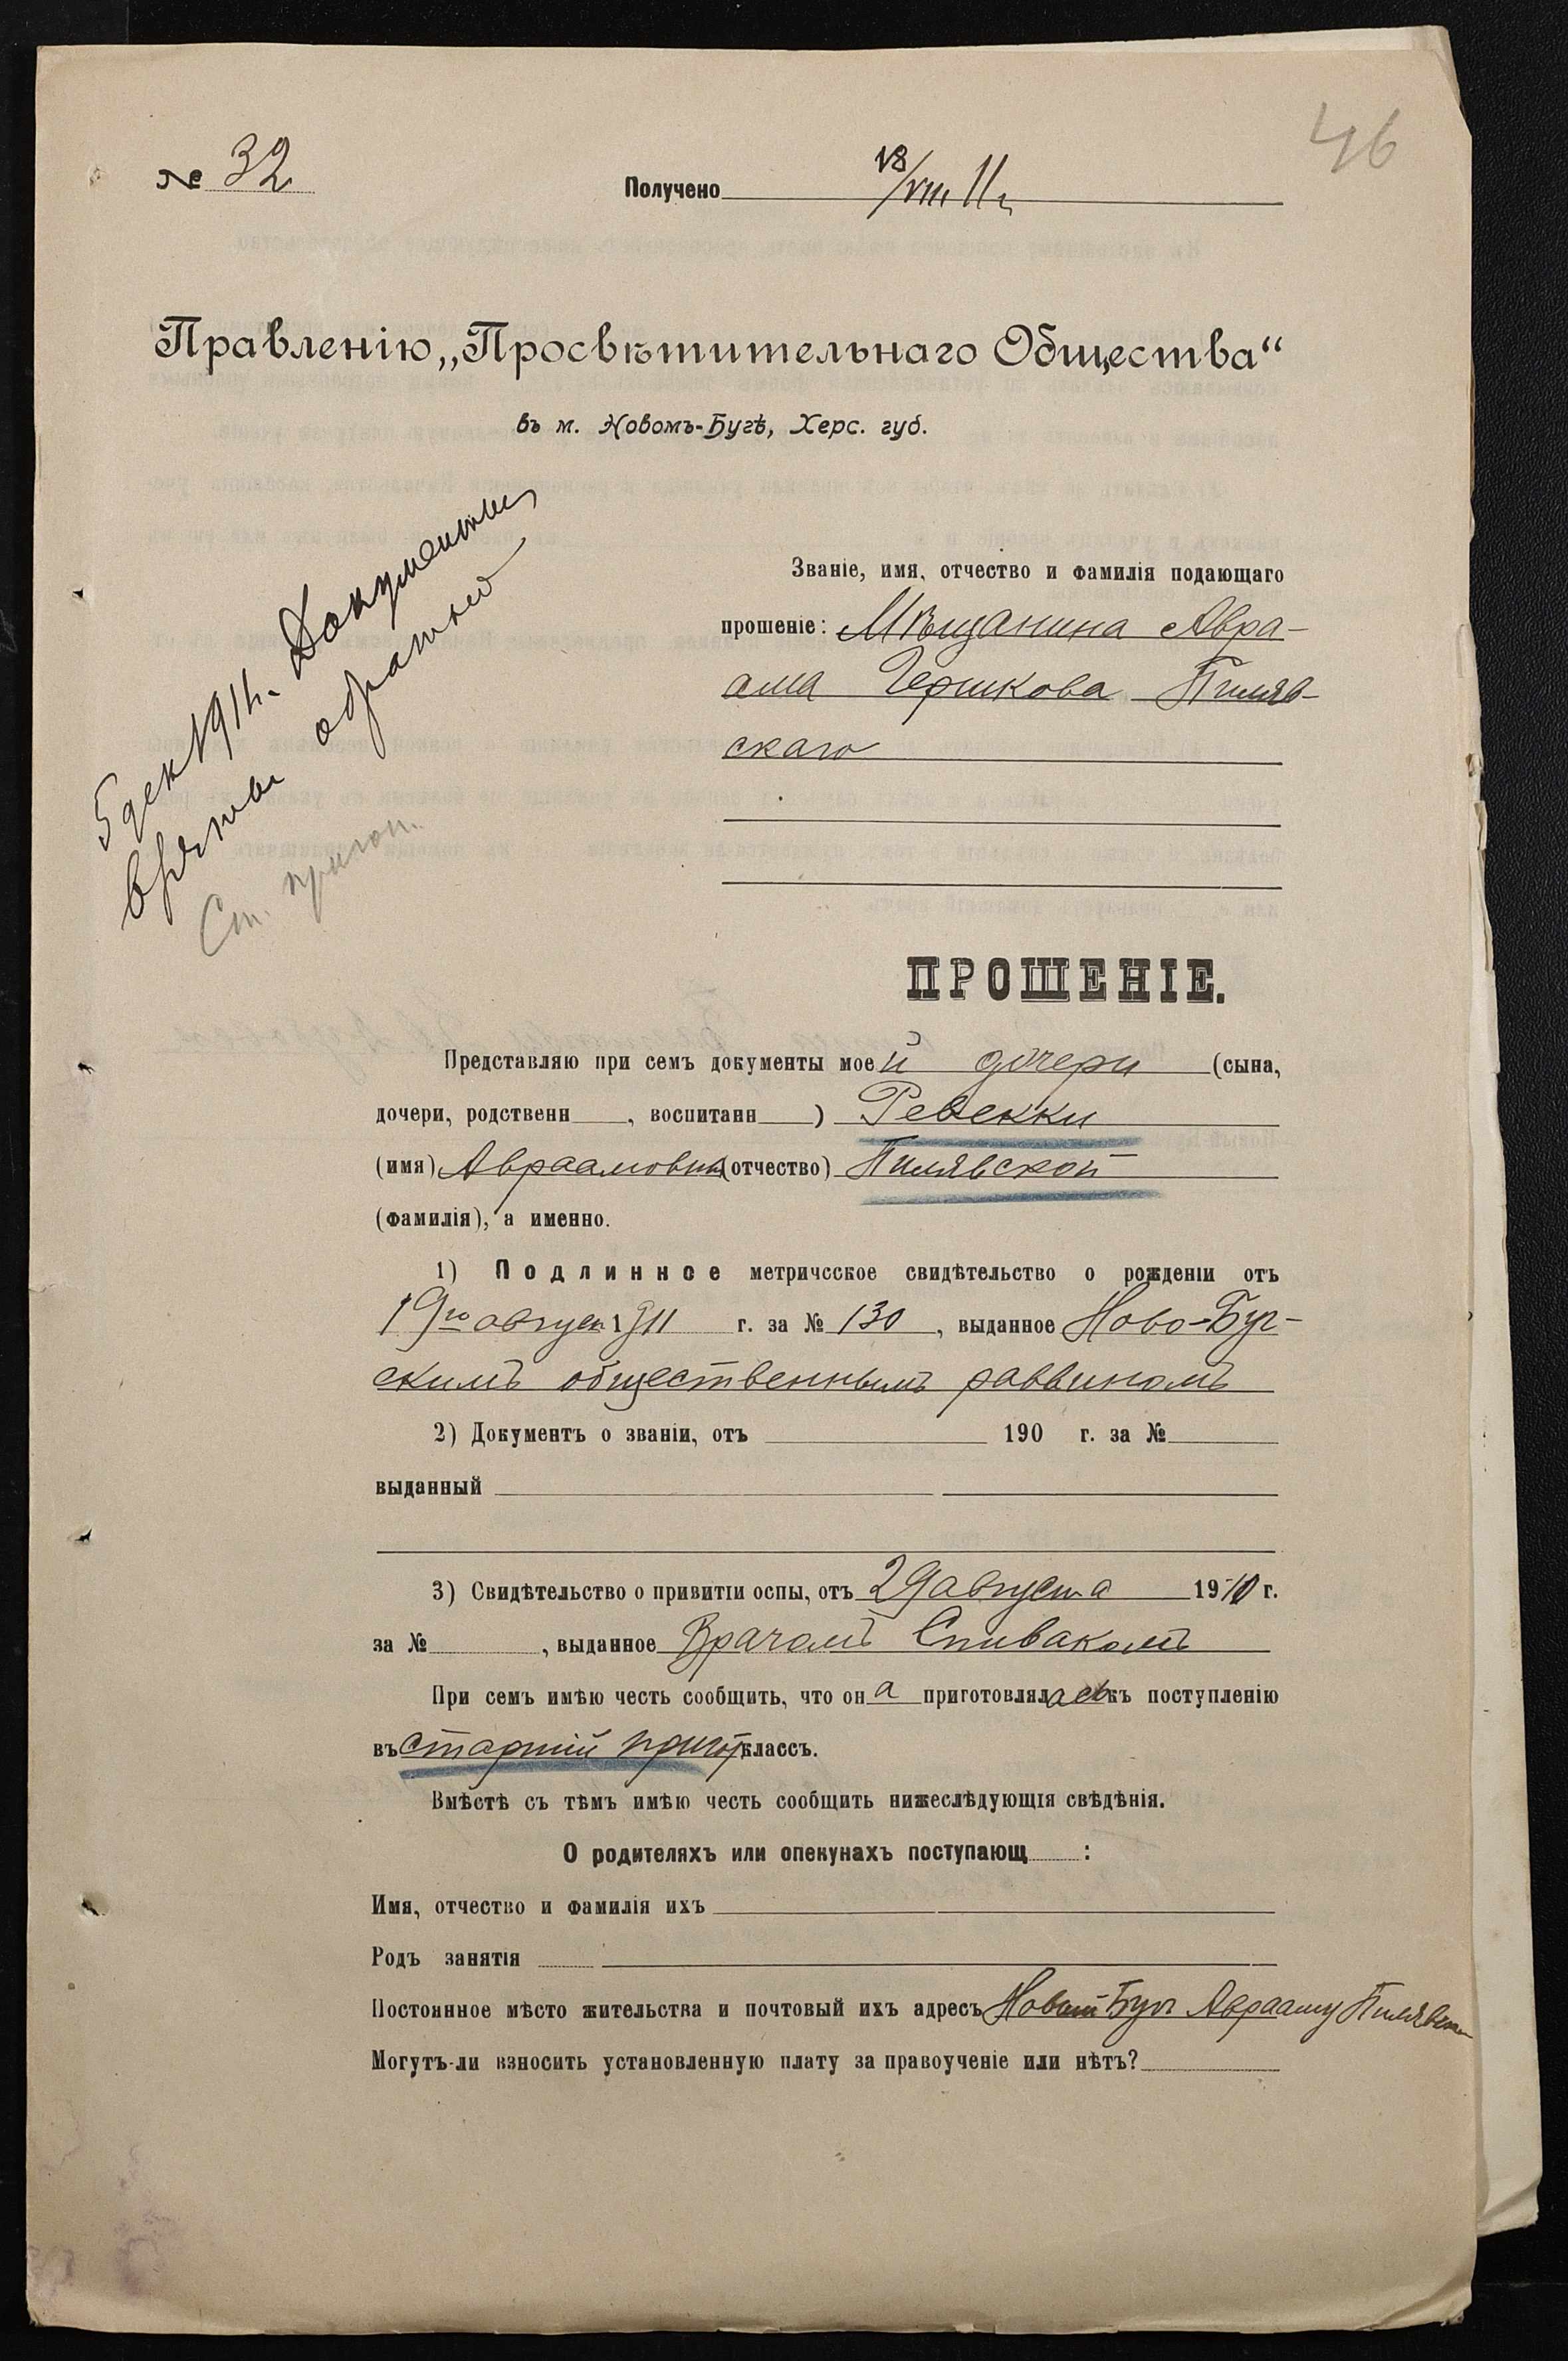 46
№ 32
Получено 18/VIII 11 г.
Правленію „Просвѣтительнаго Общества“
въ м. Новомъ-Бугѣ, Херс. губ.
5 дек 1911 г. Документы
обратно
Ст. пригот.
Званіе, имя, отчество и фамилія подающаго
прошеніе: Мѣщанина Авра-
ама Гершкова Пиляв-
скаго
ПРОШЕНІЕ.
Представляю при семъ документы моей дочери (сына,
дочери, родственн , воспитанн ) Ревекки
(имя) Авраамовны (отчество) Пилявской
(фамилія), а именно.
1) Подлинное метрическое свидѣтельство о рожденіи отъ
19го август 1911 г. за № 130, выданное Ново-Буг-
скимъ общественнымъ раввиномъ
2) Документъ о званіи, отъ 190 г. за №
выданный
3) Свидѣтельство о привитіи оспы, отъ 29 августа 1910 г.
за № , выданное Врачомъ Спивакомъ
При семъ имѣю честь сообщить, что она приготовлялась къ поступленію
въ старшій пригот классъ.
Вмѣстѣ съ тѣмъ имѣю честь сообщить нижеслѣдующія свѣдѣнія.
О родителяхъ или опекунахъ поступающ :
Имя, отчество и фамилія ихъ
Родъ занятія
Постоянное мѣсто жительства и почтовый ихъ адресъ Новый Буг Аврааму Пилявском
Могутъ-ли взносить установленную плату за правоученіе или нѣтъ?